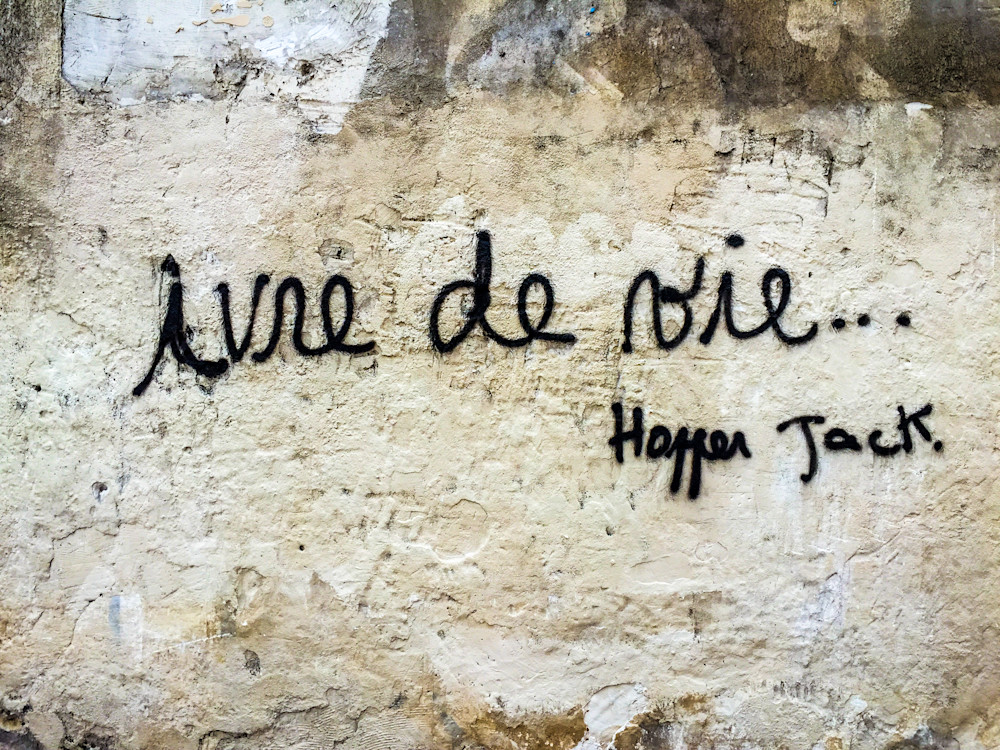 ivre de vie...
Hopper Jack.